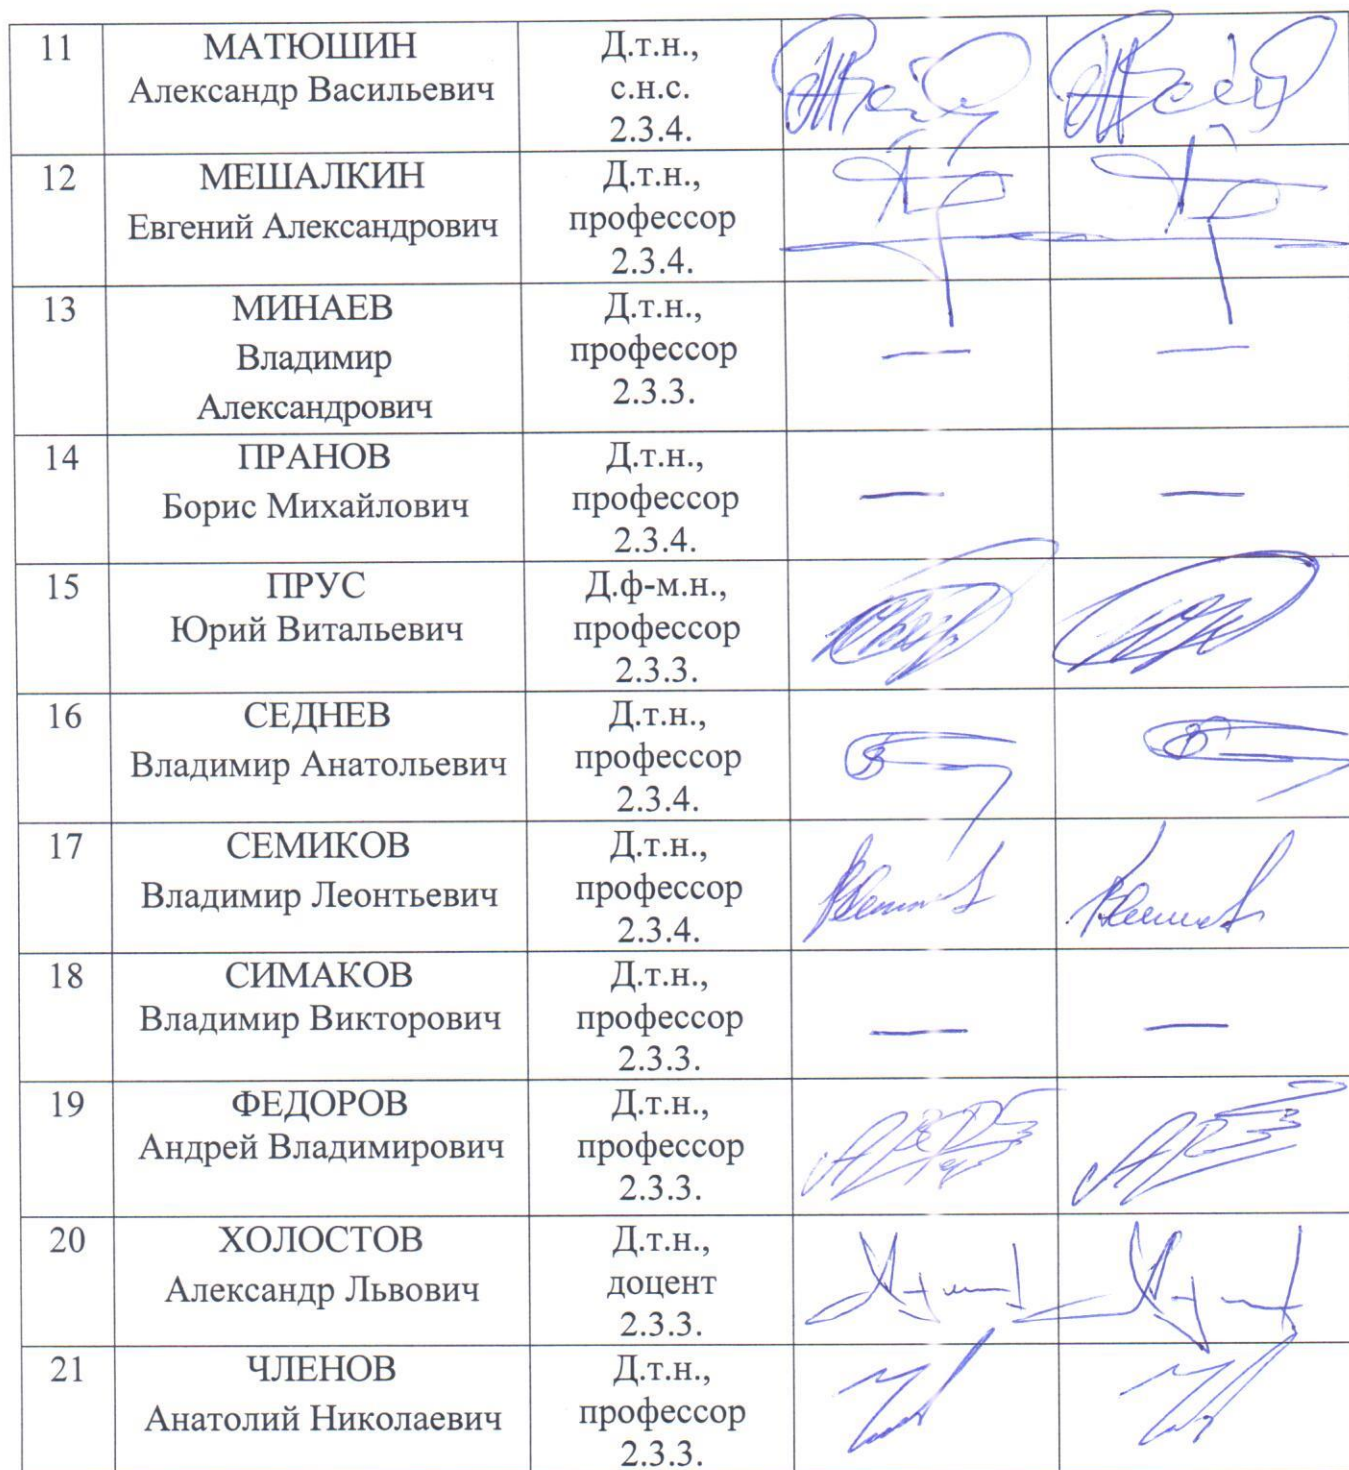 11
МАТЮШИН
Александр Васильевич
Д.т.н.,
с.н.с.
2.3.4.
12
МЕШАЛКИН
Евгений Александрович
Д.т.н.,
профессор
2.3.4.
13
МИНАЕВ
Владимир
Александрович
Д.т.н.,
профессор
2.3.3.
—
—
14
ПРАНОВ
Борис Михайлович
Д.т.н.,
профессор
2.3.4.
—
—
15
ПРУС
Юрий Витальевич
Д.ф-м.н.,
профессор
2.3.3.
16
СЕДНЕВ
Владимир Анатольевич
Д.т.н.,
профессор
2.3.4.
17
СЕМИКОВ
Владимир Леонтьевич
Д.т.н.,
профессор
2.3.4.
18
СИМАКОВ
Владимир Викторович
Д.т.н.,
профессор
2.3.3.
—
—
19
ФЕДОРОВ
Андрей Владимирович
Д.т.н.,
профессор
2.3.3.
20
ХОЛОСТОВ
Александр Львович
Д.т.н.,
доцент
2.3.3.
21
ЧЛЕНОВ
Анатолий Николаевич
Д.т.н.,
профессор
2.3.3.